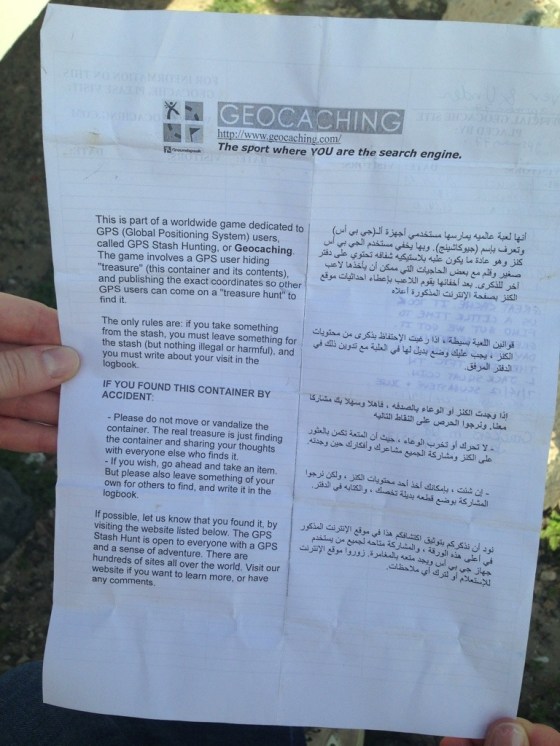 GEOCACHING
http://www.geocaching.com/
The sport where YOU are the search engine.
This is part of a worldwide game dedicated to
GPS (Global Positioning System) users,
called GPS Stash Hunting, or Geocaching.
The game involves a GPS user hiding
"treasure" (this container and its contents),
and publishing the exact coordinates so other
GPS users can come on a "treasure hunt" to
find it.
The only rules are: if you take something
from the stash, you must leave something for
the stash (but nothing illegal or harmful), and
you must write about your visit in the
logbook.
IF YOU FOUND THIS CONTAINER BY
ACCIDENT:
- Please do not move or vandalize the
container. The real treasure is just finding
the container and sharing your thoughts
with everyone else who finds it.
- If you wish, go ahead and take an item.
But please also leave something of your
own for others to find, and write it in the
logbook.
If possible, let us know that you found it, by
visiting the website listed below. The GPS
Stash Hunt is open to everyone with a GPS
and a sense of adventure. There are
hundreds of sites all over the world. Visit our
website if you want to learn more, or have
any comments.
أنها لعبة عالميه يمارسها مستخدمي أجهزة الـ(جي بي أس)
وتعرف بإسم (جيوكاشينج). وبها يخفي مستخدم الجي بي أس
كنز وهو عادة ما يكون عليه بلاستيكيه شفافه تحتوي على دفتر
صغير وقلم مع بعض الحاجيات التي ممكن أن يأخذها لاعب
أخر للذكرى. بعد أخفائها يقوم اللاعب بإعطاء احداثيات موقع
الكنز بصفحة الإنترنت المذكورة أعلاه
قوانين اللعبة بسيطة، اذا رغبت الإحتفاظ بذكرى من محتويات
الكنز ، يجب عليك وضع بديل لها في العلبة مع تدوين ذلك في
الدفتر المرفق.
إذا وجدت الكنز أو الوعاء بالصدفه ، فأهلا وسهلا بك مشاركا
معنا. ونرجوا الحرص على النقاط التاليه
- لا تحرك أو تخرب الوعاء ، حيث أن المتعة تكمن بالعثور
على الكنز ومشاركة الجميع مشاعرك وأفكارك حين وجدته.
- إن شئت ، بإمكانك أخذ أحد محتويات الكنز ، ولكن نرجوا
المشاركة بوضع قطعه بديلة تخصك ، والكتابه في الدفتر.
نود أن نذكركم بتوثيق اكتشافكم هذا في موقع الإنترنت المذكور
في أعلى هذه الورقة ، والمشاركة متاحه لجميع من يستخدم
جهاز جي بي أس ويجد متعه بالمغامرة. زوروا موقع الإنترنت
للإستعلام أو لترك أي ملاحظات.